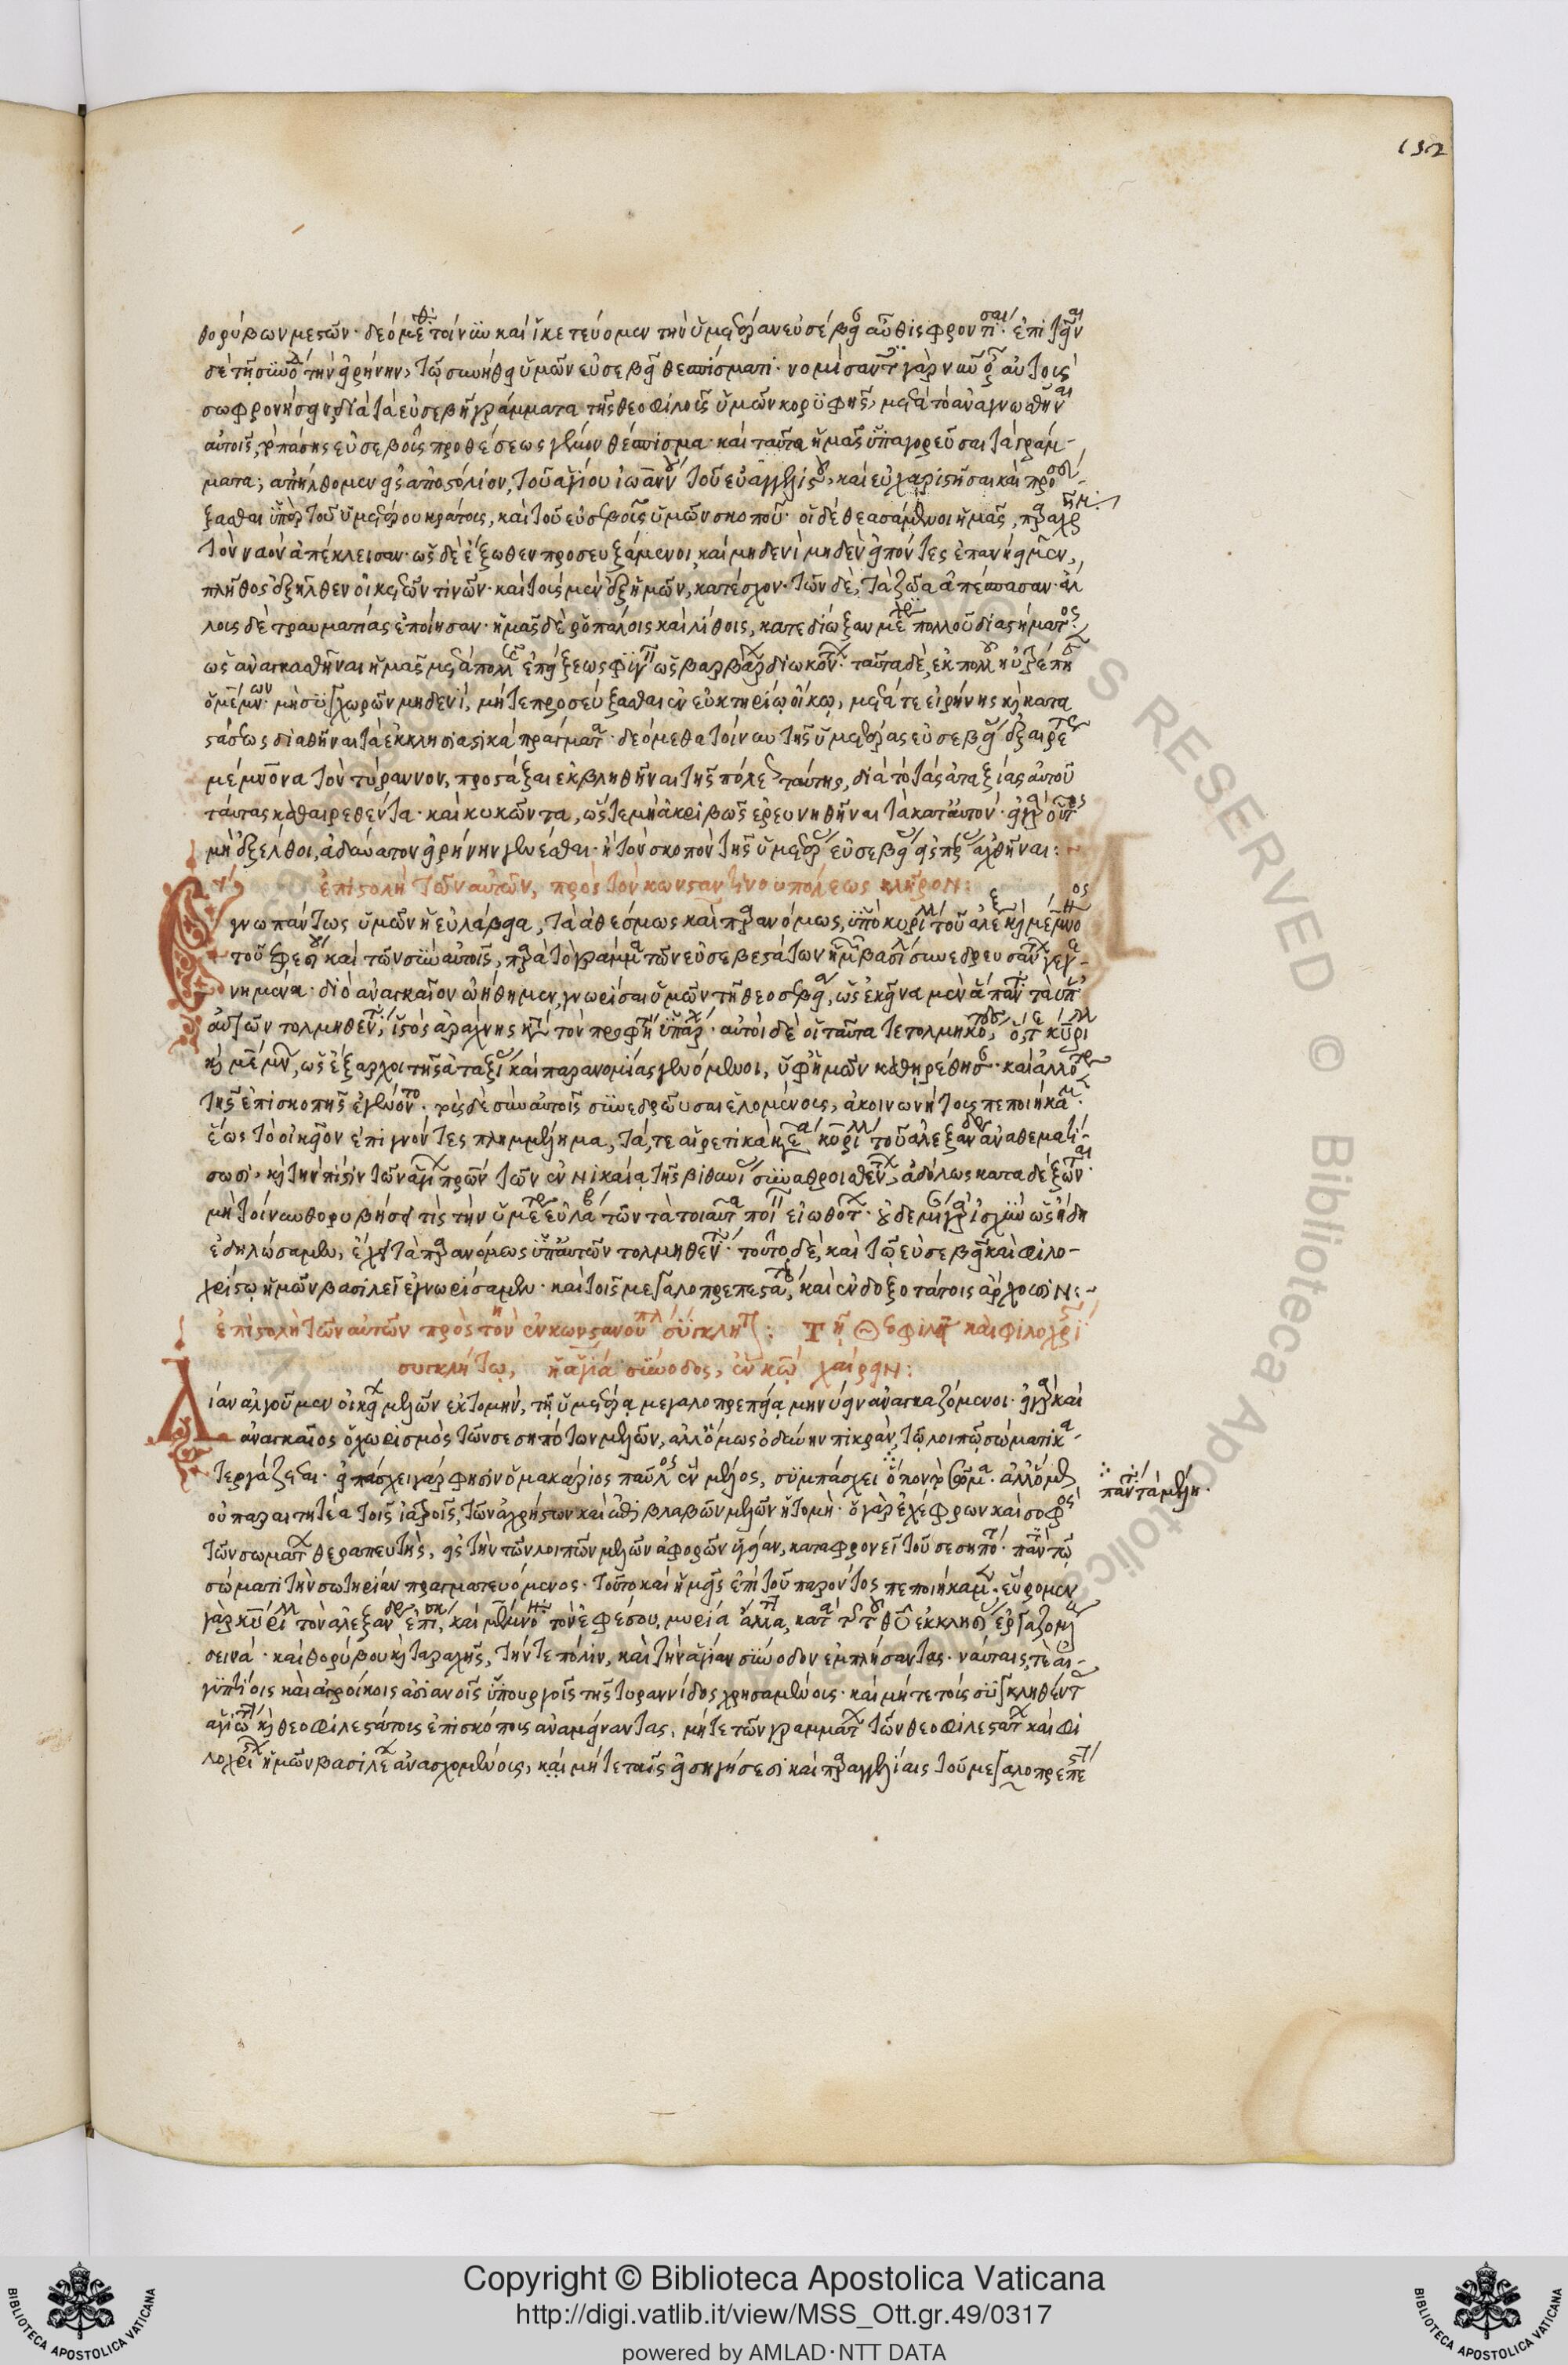 152
θορύβων μεστῶν· δεόμεθα τοίνυν καὶ ἱκετεύομεν τὴν ὑμετέραν εὐσέβειαν αὖθις φροντίσαι· ἐπιθεῖναι
δὲ τῇ συνόδῳ τὴν εἰρήνην, τῷ συνήθει ὑμῶν εὐσεβεῖ θεσπίσματι· νομίσαντες γὰρ αὐτοὺς
σωφρονήσειν διὰ τὰ εὐσεβῆ γράμματα τῆς θεοφιλοῦς ὑμῶν κορυφῆς, μετὰ τὸ ἀναγνωσθῆναι
αὐτοῖς, πάσης εὐσεβοῦς προθέσεως γέμον θέσπισμα· καὶ ταῦτα ἡμᾶς ὑπαγορεῦσαι τὰ γράμ-
ματα; ἀπήλθομεν εἰς ἀποστόλιον, τοῦ ἁγίου ἰωάννου τοῦ εὐαγγελιστοῦ, καὶ εὐχαριστῆσαι καὶ προσεύ-
ξασθαι ὑπὲρ τοῦ ὑμετέρου κράτους, καὶ τοῦ εὐσεβοῦς ὑμῶν σκοποῦ· οἱ δὲ θεασάμενοι ἡμᾶς, παραχρῆμα
τὸν ναὸν ἀπέκλεισαν· ὡς δὲ ἔξωθεν προσευξάμενοι, καὶ μηδενὶ μηδὲν εἰπόντες ἐπανῄειμεν,
πλῆθος ἐξῆλθεν οἰκετῶν τινῶν· καὶ τοὺς μὲν ἐξ ἡμῶν, κατέσχον· τῶν δὲ, τὰ ζῶα ἀπέσπασαν· ἄλ
λους δὲ τραυματίας ἐποίησαν· ἡμᾶς δὲ ῥοπάλοις καὶ λίθοις, κατεδίωξαν μέχρι πολλοῦ διαστήματος·
ὡς ἀναγκασθῆναι ἡμᾶς μετὰ πολλῆς ἐπείξεως φυγεῖν ὡς βαρβάρων διωκόντων· ταῦτα δὲ, ἐκ πολλοῦ ηὐτρέπισεν
ὁ μέμνων· μὴ συγχωρῶν μηδενὶ, μήτε προσεύξασθαι ἐν εὐκτηρίῳ οἴκῳ, μετά τε εἰρήνης καὶ κατα
στάσεως διαθῆναι τὰ ἐκκλησιαστικὰ πράγματα· δεόμεθα τοίνυν τῆς ὑμετέρας εὐσεβείας ἐξαιρέτως
μέμνονα τὸν τύραννον, προστάξαι ἐκβληθῆναι τῆς πόλεως ταύτης, διὰ τὸ τὰς ἀταξίας αὐτοῦ
ταύτας καθαιρεθέντα· καὶ κυκῶντα, ὥστε μὴ ἀκριβῶς ἐρευνηθῆναι τὰ κατ' αὐτόν· εἰ γὰρ οὗτος
μὴ ἐξέλθοι, ἀδύνατον εἰρήνην γενέσθαι· ἢ τὸν σκοπὸν τῆς ὑμετέρας εὐσεβείας εἰς πέρας ἀχθῆναι:~
ἐπιστολὴ τῶν αὐτῶν, πρὸς τὸν κωνσταντινουπόλεως κλῆρον:
Ἔγνω πάντως ὑμῶν ἡ εὐλάβεια, τὰ ἀθέσμως καὶ παρανόμως, ὑπὸ κυρίλλου τοῦ ἀλεξ καὶ μέμνονος
τοῦ ἐφεσίου καὶ τῶν σὺν αὐτοῖς, παρὰ τὸ γράμμα τῶν εὐσεβεστάτων ἡμῶν βασιλέων συνεδρευσάντων γεγε-
νημένα· διὸ ἀναγκαῖον ᾠήθημεν, γνωρίσαι ὑμῶν τῇ θεοσεβείᾳ, ὡς ἐκεῖνα μὲν ἅπαντα τὰ ὑπ'
αὐτῶν τολμηθέντα, ἱστὸς ἀράχνης κατὰ τὸν προφήτην ὑπάρχει· αὐτοὶ δὲ οἱ ταῦτα τετολμηκότες, ὅ τε κύριλλος
καὶ μέμνων, ὡς ἔξαρχοι τῆς ἀταξίας καὶ παρανομίας γενόμενοι, ὑφ' ἡμῶν καθῃρέθησαν· καὶ ἀλλότριοι
τῆς ἐπισκοπῆς ἐγένοντο· τοὺς δὲ σὺν αὐτοῖς συνεδρεῦσαι ἑλομένους, ἀκοινωνήτους πεποιήκαμεν·
ἕως τὸ οἰκεῖον ἐπιγνόντες πλημμέλημα, τά, τε αἱρετικὰ κεφάλαια κυρίλλου τοῦ ἀλεξανδρ ἀναθεματί-
σωσι, καὶ τὴν πίστιν τῶν ἁγίων πατέρων τῶν ἐν νικαίᾳ τῆς βιθυνίας συναθροισθέντων, ἀδόλως καταδέξωνται·
μὴ τοίνυν θορυβήσει τις τὴν ὑμετέραν εὐλάβειαν τῶν τὰ τοιαῦτα ποιεῖν εἰωθότων· οὐδεμίαν γὰρ ἰσχὺν ὡς ἤδη
ἐδηλώσαμεν, ἔχει τὰ παρανόμως ὑπ' αὐτῶν τολμηθέντα· τοῦτο δὲ, καὶ τῷ εὐσεβεῖ καὶ φιλο-
χρίστῳ ἡμῶν βασιλεῖ ἐγνωρίσαμεν· καὶ τοῖς μεγαλοπρεπεστάτοις, καὶ ἐνδοξοτάτοις ἄρχουσιν:~
ἐπιστολὴ τῶν αὐτῶν πρὸς τὴν ἐν κωνσταντινουπόλει σύγκλητον: Τῇ Θεοφιλεῖ καὶ φιλοχρίστῳ
συγκλήτῳ, ἡ ἁγία σύνοδος, ἐν κῷ χαίρειν:
Λίαν ἀλγοῦμεν οἰκείων μελῶν ἐκτομὴν, τῇ ὑμετέρᾳ μεγαλοπρεπείᾳ μηνύειν ἀναγκαζόμενοι· εἰ γὰρ καὶ
ἀναγκαῖος ὁ χωρισμὸς τῶν σεσηπότων μελῶν, ἀλλ' ὅμως ὀδύνην πικρὰν, τῷ λοιπῷ σώματι κα-
τεργάζεται· εἰ πάσχει γάρ φησιν ὁ μακάριος παῦλος ἓν μέλος, συμπάσχει ὅλον τὸ σῶμα· ἀλλ' ὅμως
πάντα τὰ μέλη·
οὐ παραιτητέα τοῖς ἰατροῖς, τῶν ἀχρήστων καὶ ἐπιβλαβῶν μελῶν ἡ τομή· ὁ γὰρ ἐχέφρων καὶ σοφὸς
τῶν σωμάτων θεραπευτὴς, εἰς τὴν τῶν λοιπῶν μελῶν ἀφορῶν ὑγείαν, καταφρονεῖ τοῦ σεσηπότος· παντὶ τῷ
σώματι τὴν σωτηρίαν πραγματευόμενος· τοῦτο καὶ ἡμεῖς ἐπὶ τοῦ παρόντος πεποιήκαμεν· εὕρομεν
γὰρ κύριλλον τὸν ἀλεξανδρ ἐπίσκοπον, καὶ μέμνονα τὸν ἐφέσου, μυρία ἄλλα, κατὰ τῆς τοῦ θῦ ἐκκλησίας ἐργαζομένους
δεινά· καὶ θορύβου καὶ ταραχῆς, τήν τε πόλιν, καὶ τὴν ἁγίαν σύνοδον ἐμπλήσαντας· ναύταις, τε αἰ-
γυπτίοις καὶ ἀγροίκοις ἀσιανοῖς ὑπουργοῖς τῆς τυραννίδος χρησαμένους· καὶ μήτε τοὺς συγκληθέντας
ἁγιωτάτους καὶ θεοφιλεστάτους ἐπισκόπους ἀναμείναντας, μήτε τῶν γραμμάτων τῶν θεοφιλεστάτων καὶ φι
λοχρίστων ἡμῶν βασιλέων ἀνασχομένους, καὶ μήτε ταῖς εἰσηγήσεσι καὶ παραγγελίαις τοῦ μεγαλοπρεπεστ
Copyright © Biblioteca Apostolica Vaticana
http://digi.vatlib.it/view/MSS_Ott.gr.49/0317
powered by AMLAD·NTT DATA